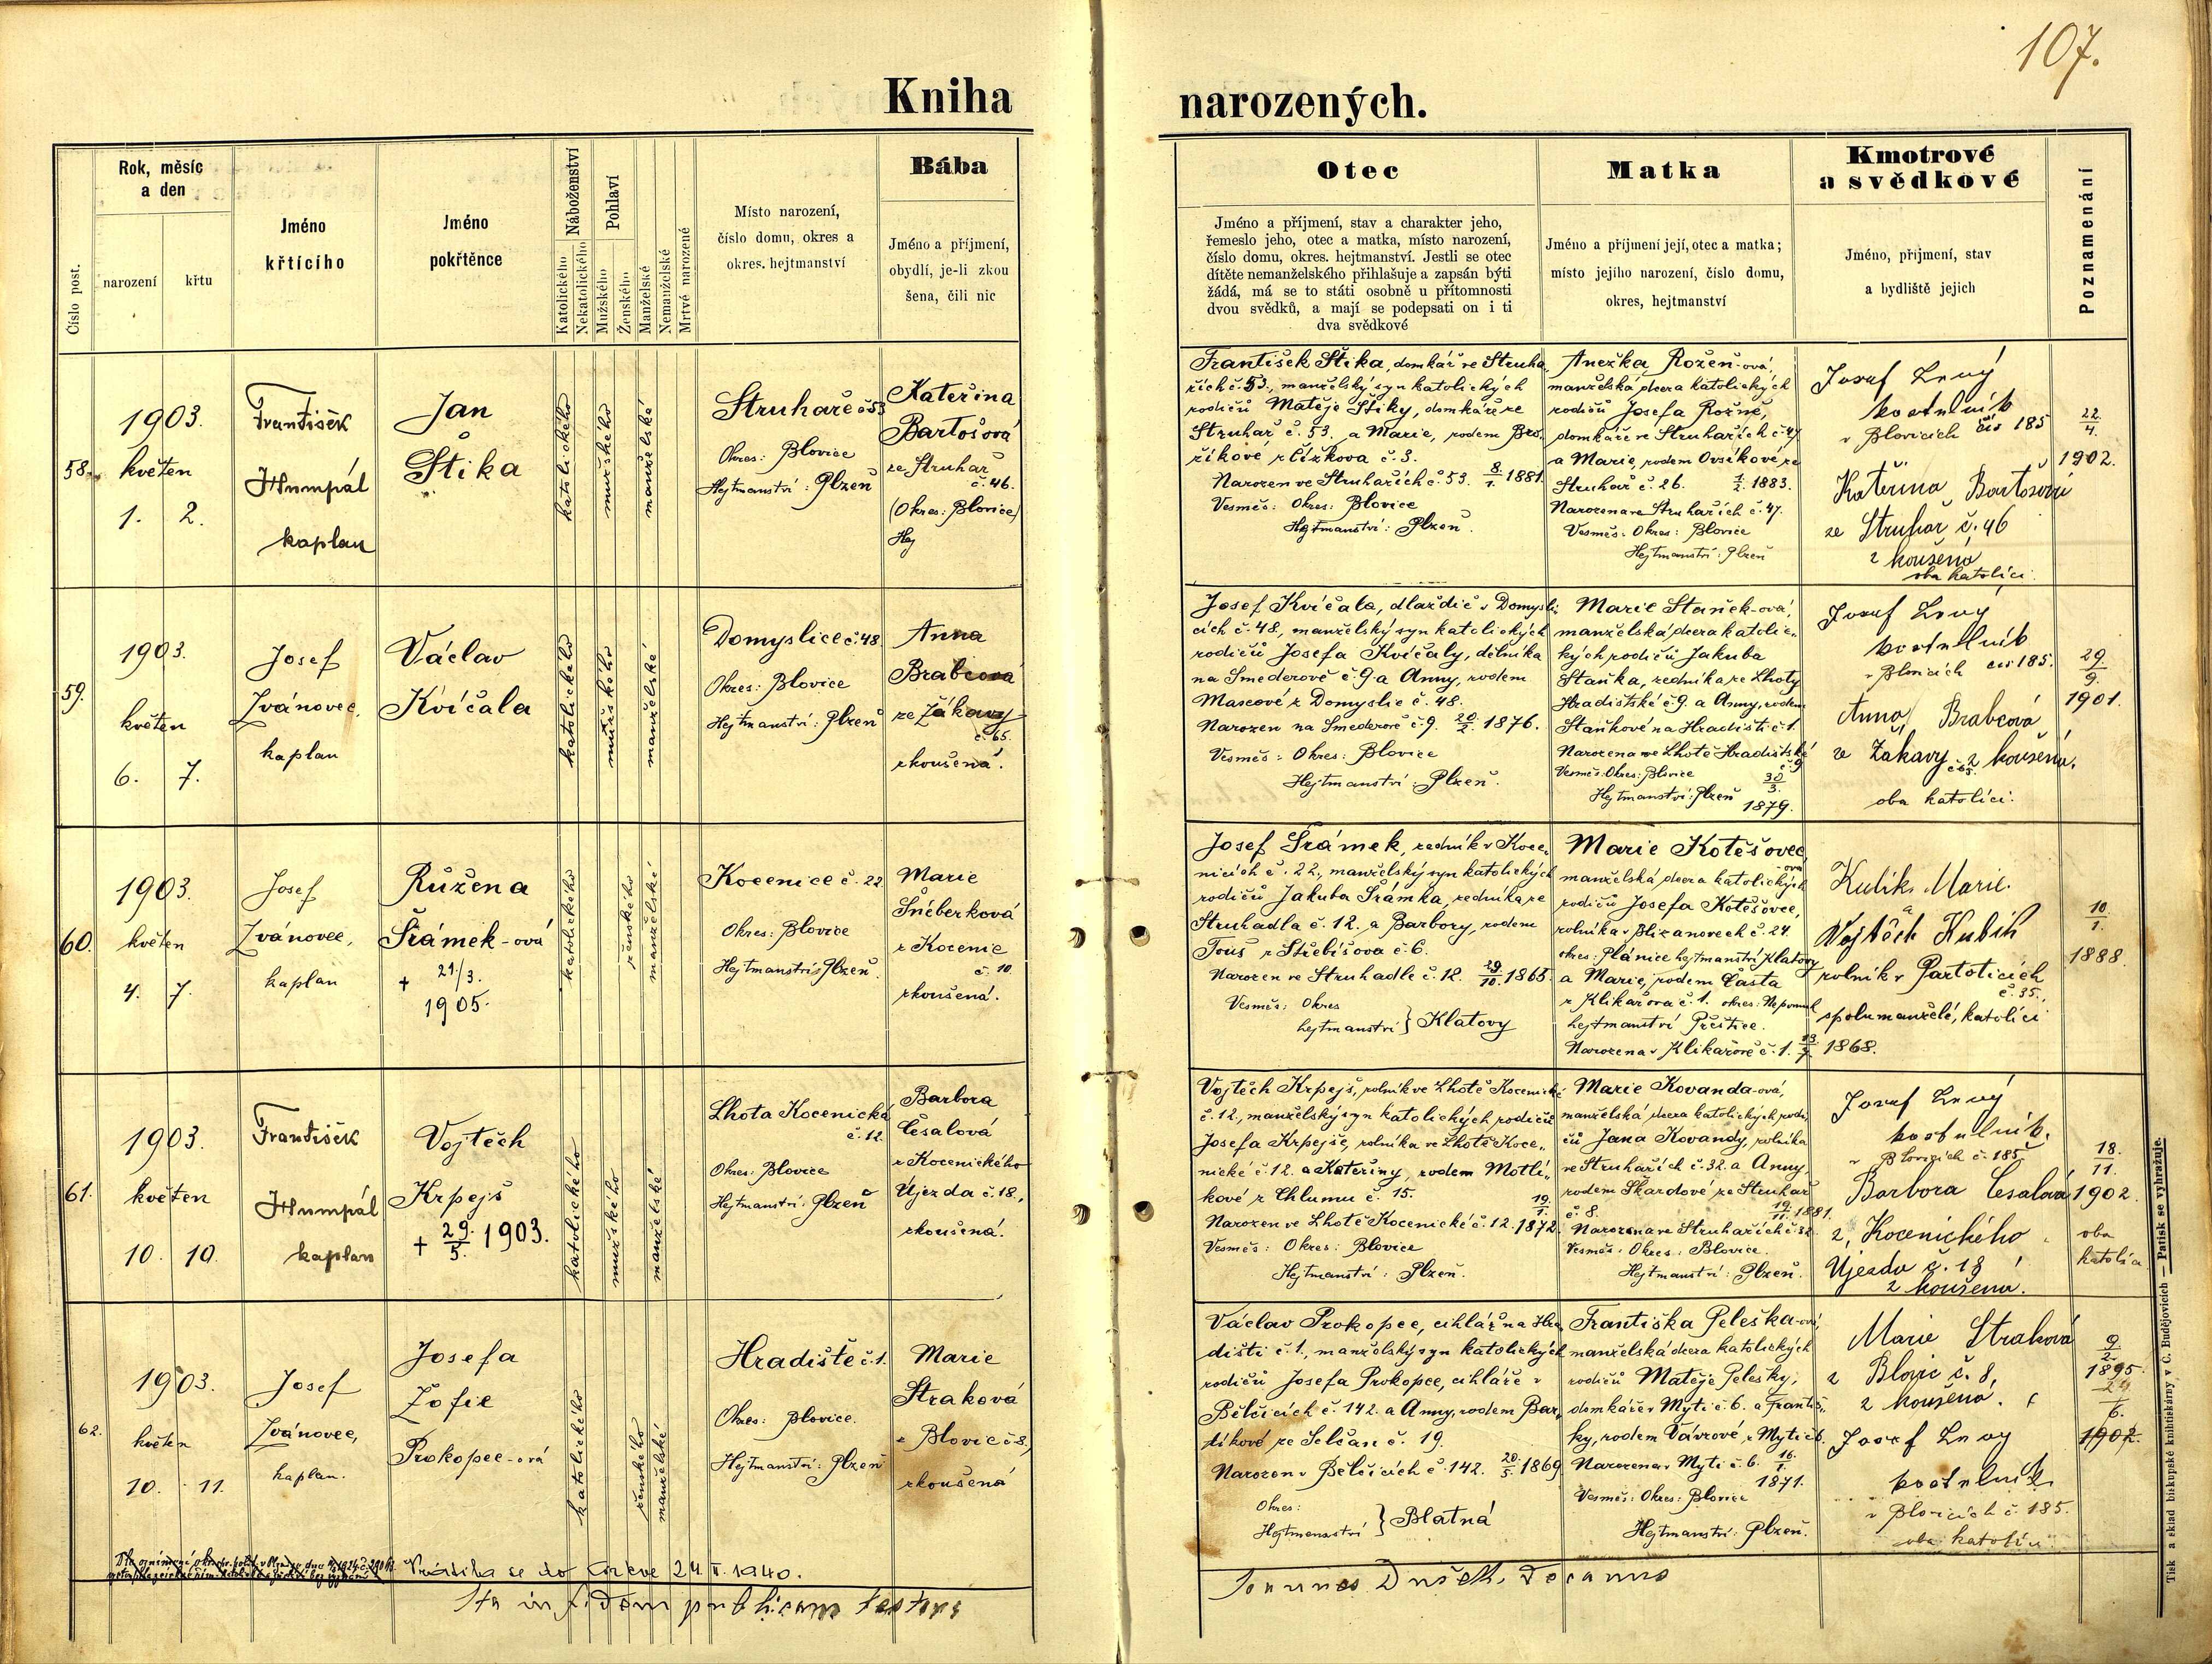 107.
Kniha narozených.
Číslo post.
Rok, měsíc
a den
narození
křtu
Jméno
křtícího
Jméno
pokřtěnce
Náboženství
Katolického
Nekatolického
Pohlaví
Mužského
Ženského
Manželské
Nemanželské
Mrtvě narozené
Místo narození,
číslo domu, okres a
okres. hejtmanství
Bába
Jméno a příjmení,
obydlí, je-li zkou
šena, čili nic
Otec
Jméno a příjmení, stav a charakter jeho,
řemeslo jeho, otec a matka, místo narození,
číslo domu, okres. hejtmanství. Jestli se otec
dítěte nemanželského přihlašuje a zapsán býti
žádá, má se to státi osobně u přítomnosti
dvou svědků, a mají se podepsati on i ti
dva svědkové
Matka
Jméno a příjmení její, otec a matka;
místo jejího narození, číslo domu,
okres, hejtmanství
Kmotrové
a svědkové
Jméno, příjmení, stav
a bydliště jejich
Poznamenání
58.
1903.
květen
1. 2.
František
Humpál
kaplan
Jan
Štika
katolického
mužského
manželské
Struhaře č 53
Okres: Blovice
Hejtmanství: Plzeň
Kateřina
Bartošová
ze Struhař
č. 46.
(Okres: Blovice)
Hej
František Štika, domkář ve Struha
řích č. 53., manželský syn katolických
rodičů Matěje Štiky, domkáře ze
Struhař č. 53. a Marie, rodem Brš
říkové z Čížkova č. 3.
Narozen ve Struhařích č. 53. 8/1. 1881.
Vesměs: Okres: Blovice
Hejtmanství: Plzeň.
Anežka Rožeň-ová,
manželská dcera katolických
rodičů Josefa Rožně,
domkáře ve Struhařích č. 47
a Marie, rodem Ovsíkové ze
Struhař č. 26. 1/2. 1883.
Narozena ve Struhařích č. 47.
Vesměs: Okres: Blovice
Hejtmanství: Plzeň
Josef Levý
kostelník
v Blovicích čís 185
Kateřina Bartošová
ze Struhař č. 46
zkoušená
oba katolíci.
22/4.
1902.
59.
1903.
květen
6. 7.
Josef
Zvánovec,
kaplan
Václav
Kvíčala
katolického
mužského
manželské
Domyslice č. 48
Okres: Blovice
Hejtmanství: Plzeň
Anna
Brabcová
ze Žákavy
č. 65.
zkoušená.
Josef Kvíčala, dlaždič v Domysli
cích č. 48., manželský syn katolických
rodičů Josefa Kvíčaly, dělníka
na Smederově č. 9 a Anny, rodem
Mascové z Domyslic č. 48.
Narozen na Smederově č. 9. 20/2. 1876.
Vesměs: Okres: Blovice
Hejtmanství: Plzeň.
Marie Staněk-ová,
manželská dcera katolic-
kých rodičů Jakuba
Staňka, zedníka ze Lhoty
Hradištské č. 9 a Anny, rodem
Staňkové na Hradišti č. 1.
Narozena ve Lhotě Hradištské
č. 9
Vesměs: Okres: Blovice 30/3.
Hejtmanství: Plzeň 1879.
Josef Levý
kostelník
v Blovicích čís 185.
Anna Brabcová
ze Žákavy č. 65. zkoušená.
oba katolíci.
29/9.
1901.
60.
1903.
květen
4. 7.
Josef
Zvánovec,
kaplan
Růžena
Šrámek-ová
+ 21./3.
1905.
katolického
ženského
manželské
Kocenice č. 22
Okres: Blovice
Hejtmanství: Plzeň.
Marie
Šnéberková
z Kocenic
č. 10.
zkoušená.
Josef Šrámek, zedník v Koce-
nicích č. 22., manželský syn katolických
rodičů Jakuba Šrámka, zedníka ze
Struhadla č. 12. a Barbory, rodem
Touš z Střebišova č. 6.
Narozen ve Struhadle č. 12. 29/10. 1865.
Vesměs: Okres
hejtmanství } Klatovy
Marie Kotěšovec,
ová
manželská dcera katolických
rodičů Josefa Kotěšovce,
rolníka v Blizanovech č. 24.
okres: Plánice hejtmanství Klatovy
a Marie, rodem Částa
z Klikařova č. 1. okres: Nepomuk
hejtmanství Přeštice.
Narozena v Klikařově č. 1. 13/7. 1868.
Kulík Marie.
a
Vojtěch Kubík
rolník v Partoticích
č. 35.,
spolumanželé, katolíci
10/1.
1888.
61.
1903.
květen
10. 10.
František
Humpál
kaplan
Vojtěch
Krpejš
+ 29./5. 1903.
katolického
mužského
manželské
Lhota Kocenická
č. 12.
Okres: Blovice
Hejtmanství: Plzeň
Barbora
Česalová
z Kocenického
Újezda č. 18.,
zkoušená.
Vojtěch Krpejš, rolník ve Lhotě Kocenické
č. 12., manželský syn katolických rodičů
Josefa Krpejše, rolníka ve Lhotě Koce-
nické č. 12. a Kateřiny, rodem Motlí-
kové z Chlumu č. 15. 19/1.
Narozen ve Lhotě Kocenické č. 12. 1872.
Vesměs: Okres: Blovice
Hejtmanství: Plzeň.
Marie Kovanda-ová,
manželská dcera katolických rodi-
čů Jana Kovandy, rolníka
ve Struhařích č. 32. a Anny,
rodem Škardové ze Struhař
č. 8. 19/11. 1881.
Narozena ve Struhařích č. 32
Vesměs: Okres: Blovice.
Hejtmanství: Plzeň.
Josef Levý
kostelník.
v Blovicích č. 185
Barbora Česalová
z Kocenického
Újezda č. 18
zkoušena.
18./11.
1902.
oba
katolíci
62.
1903.
květen
10. 11.
Josef
Zvánovec,
kaplan.
Josefa
Žofie
Prokopec-ová
katolického
ženského
manželské
Hradiště č. 1.
Okres: Blovice.
Hejtmanství: Plzeň
Marie
Straková
z Blovic č. 8,
zkoušená
Václav Prokopec, cihlář na Hra
dišti č. 1., manželský syn katolických
rodičů Josefa Prokopce, cihláře v
Bělčicích č. 142. a Anny, rodem Bar-
tíkové ze Selčan č. 19.
Narozen v Bělčicích č. 142. 20/5. 1869
Okres:
Hejtmanství } Blatná
Františka Peleška-ová,
manželská dcera katolických
rodičů Matěje Pelešky,
domkáře v Mýtě č. 6. a Františ-
ky, rodem Vávrové, z Mýti č. 6.
Narozena v Mýti č. 6. 16./1.
1871.
Vesměs: Okres: Blovice
Hejtmanství: Plzeň.
Marie Straková
z Blovic č. 8,
zkoušená.
Josef Levý
kostelník
v Blovicích č. 185.
oba katolíci.
9/2.
1895.
24/6.
1902.
Vrátila se do církve 24. II. 1940.
Ita in fidem publicam testor
Joannes Dušek, Decanus
Tisk a sklad biskupské knihtiskárny v Č. Budějovicích — Patisk se vyhražuje.